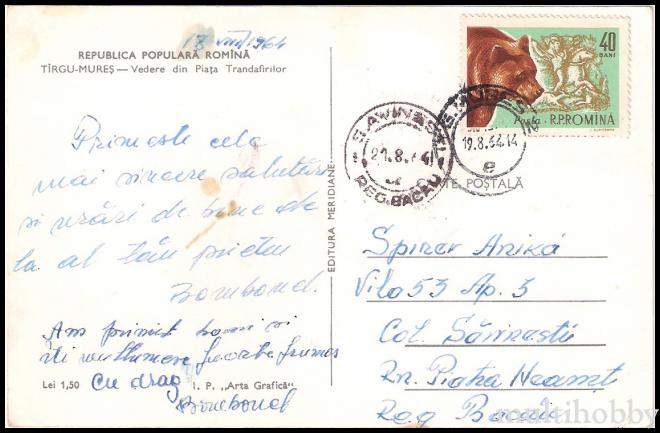 18 VIII 1964
REPUBLICA POPULARĂ ROMÎNĂ
TÎRGU-MUREȘ — Vedere din Piața Trandafirilor
Primește cele
mai sincere salutări
și urări de bine de
la al tău prieten
Bombonel.
Am primit banii și
îți mulțumesc foarte frumos
Cu drag
Bombonel
Lei 1,50
I. P. „Arta Grafică"
EDITURA MERIDIANE
40
BANI
Posta · R.P.ROMINA
SAVINESTI
21.8.64
REG. BACAU
19.8.64.14
CARTE POȘTALĂ
Spirer Anikó
Vila 53 Ap. 3
Col. Săvinești
Rn. Piatra Neamț
Reg Bacău
multihobby